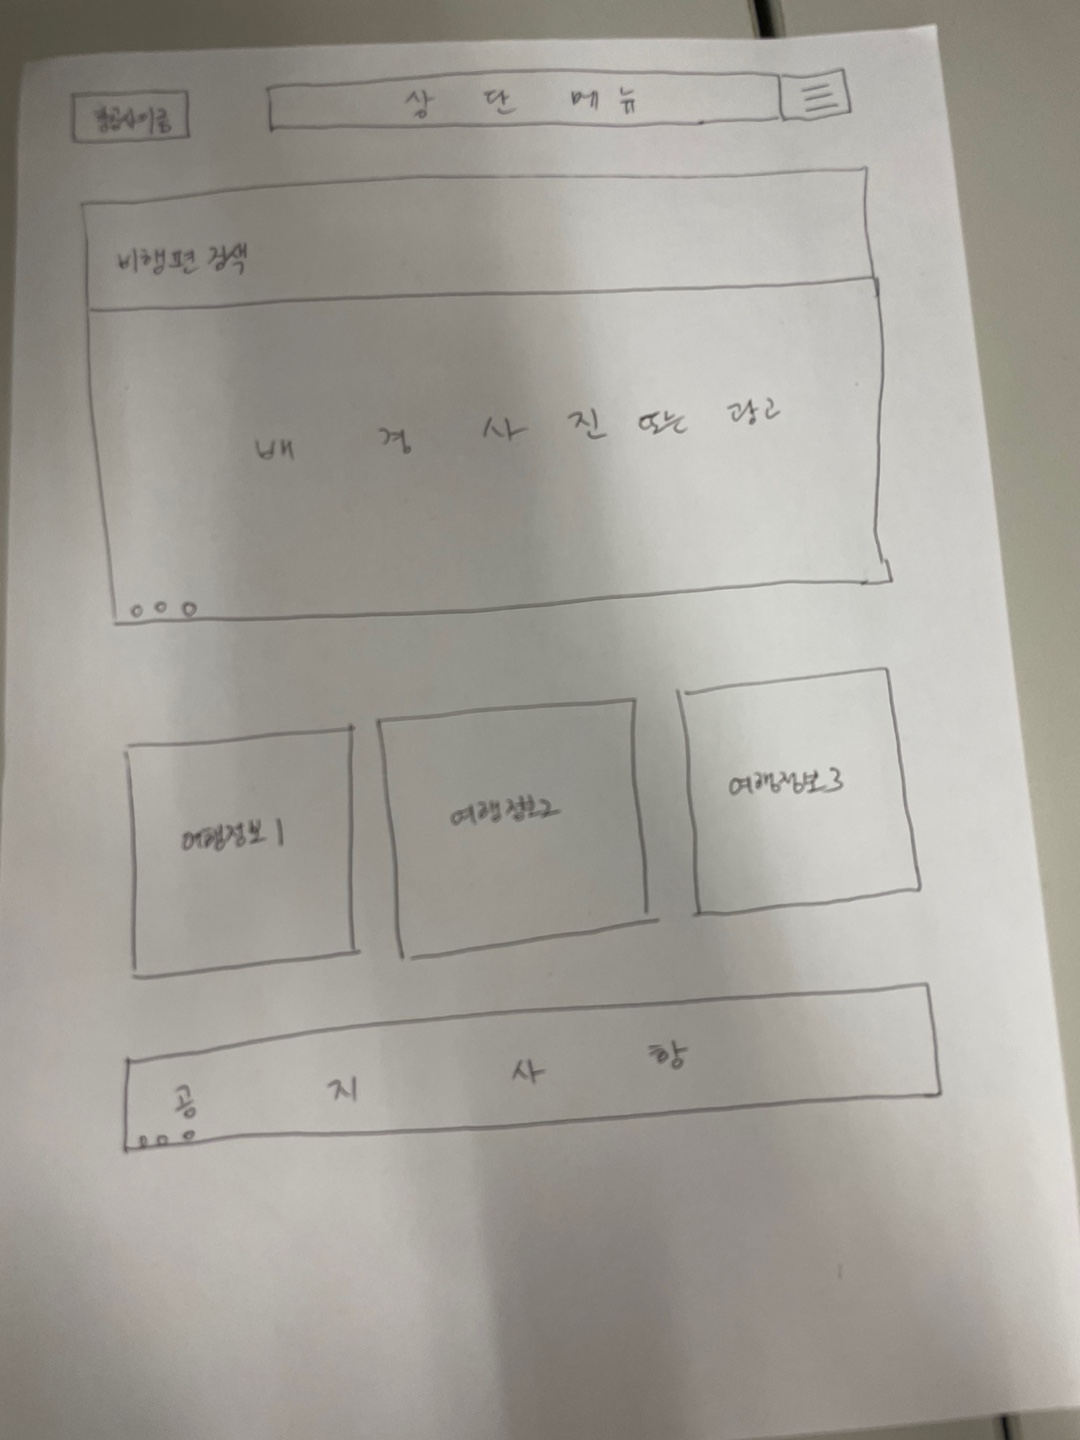 항공사이름
상 단 메 뉴
비행편 검색
배 경 사 진 또는 광고
여행정보 1
여행정보2
여행정보3
공 지 사 항